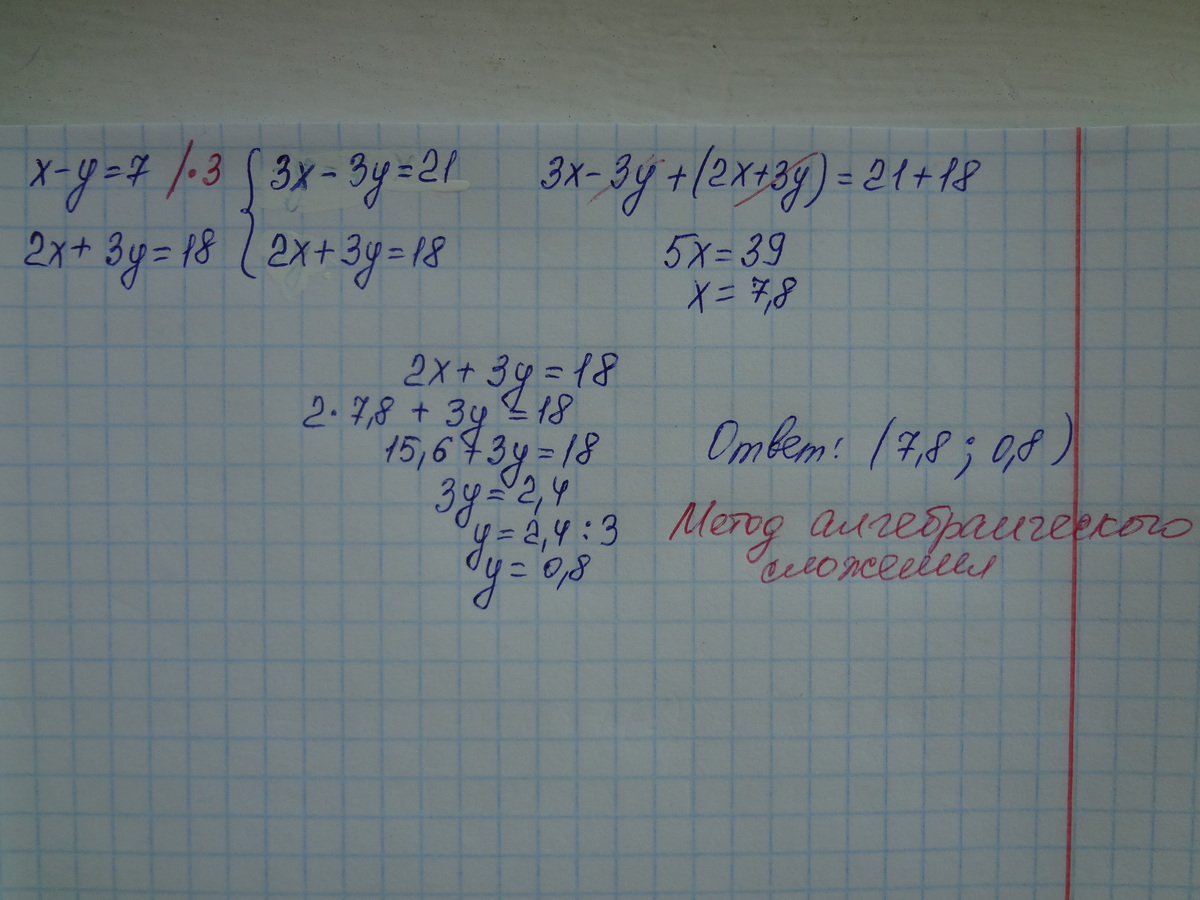 x-y=7 /·3
2x+3y=18
{3x-3y=21
2x+3y=18
3x-3y+(2x+3y)=21+18
5x=39
x=7,8
2x+3y=18
2·7,8+3y=18
15,6+3y=18
3y=2,4
y=2,4:3
y=0,8
Ответ: (7,8; 0,8)
Метод алгебраического
сложения